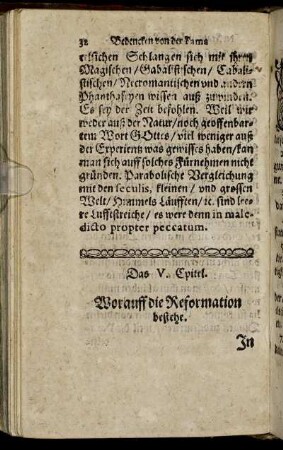 32 Bedencken von der Fama
Schlangen sich mit ihren
Magischen / Gabalistischen / Cabali-
stischen / Necromantischen vnd andern
Phanthaseyen wissen auß zuwinden.
Es sey der Zeit befohlen. Weil wir
weder auß der Natur / noch geoffenbar-
tem Wort GOttes / viel weniger auß
der Experientz was gewisses haben / kan
man sich auff solches Fürnehmen nicht
gründen. Parabolische Vergleichung
mit den seculis, kleinen / vnd grossen
Welt / Himmels Läufften / ꝛc. sind lee-
re Lufftstreiche / es were denn in male-
dicto propter peccatum.
Das V. Cpitel.
Worauff die Reformation
bestehe.
In